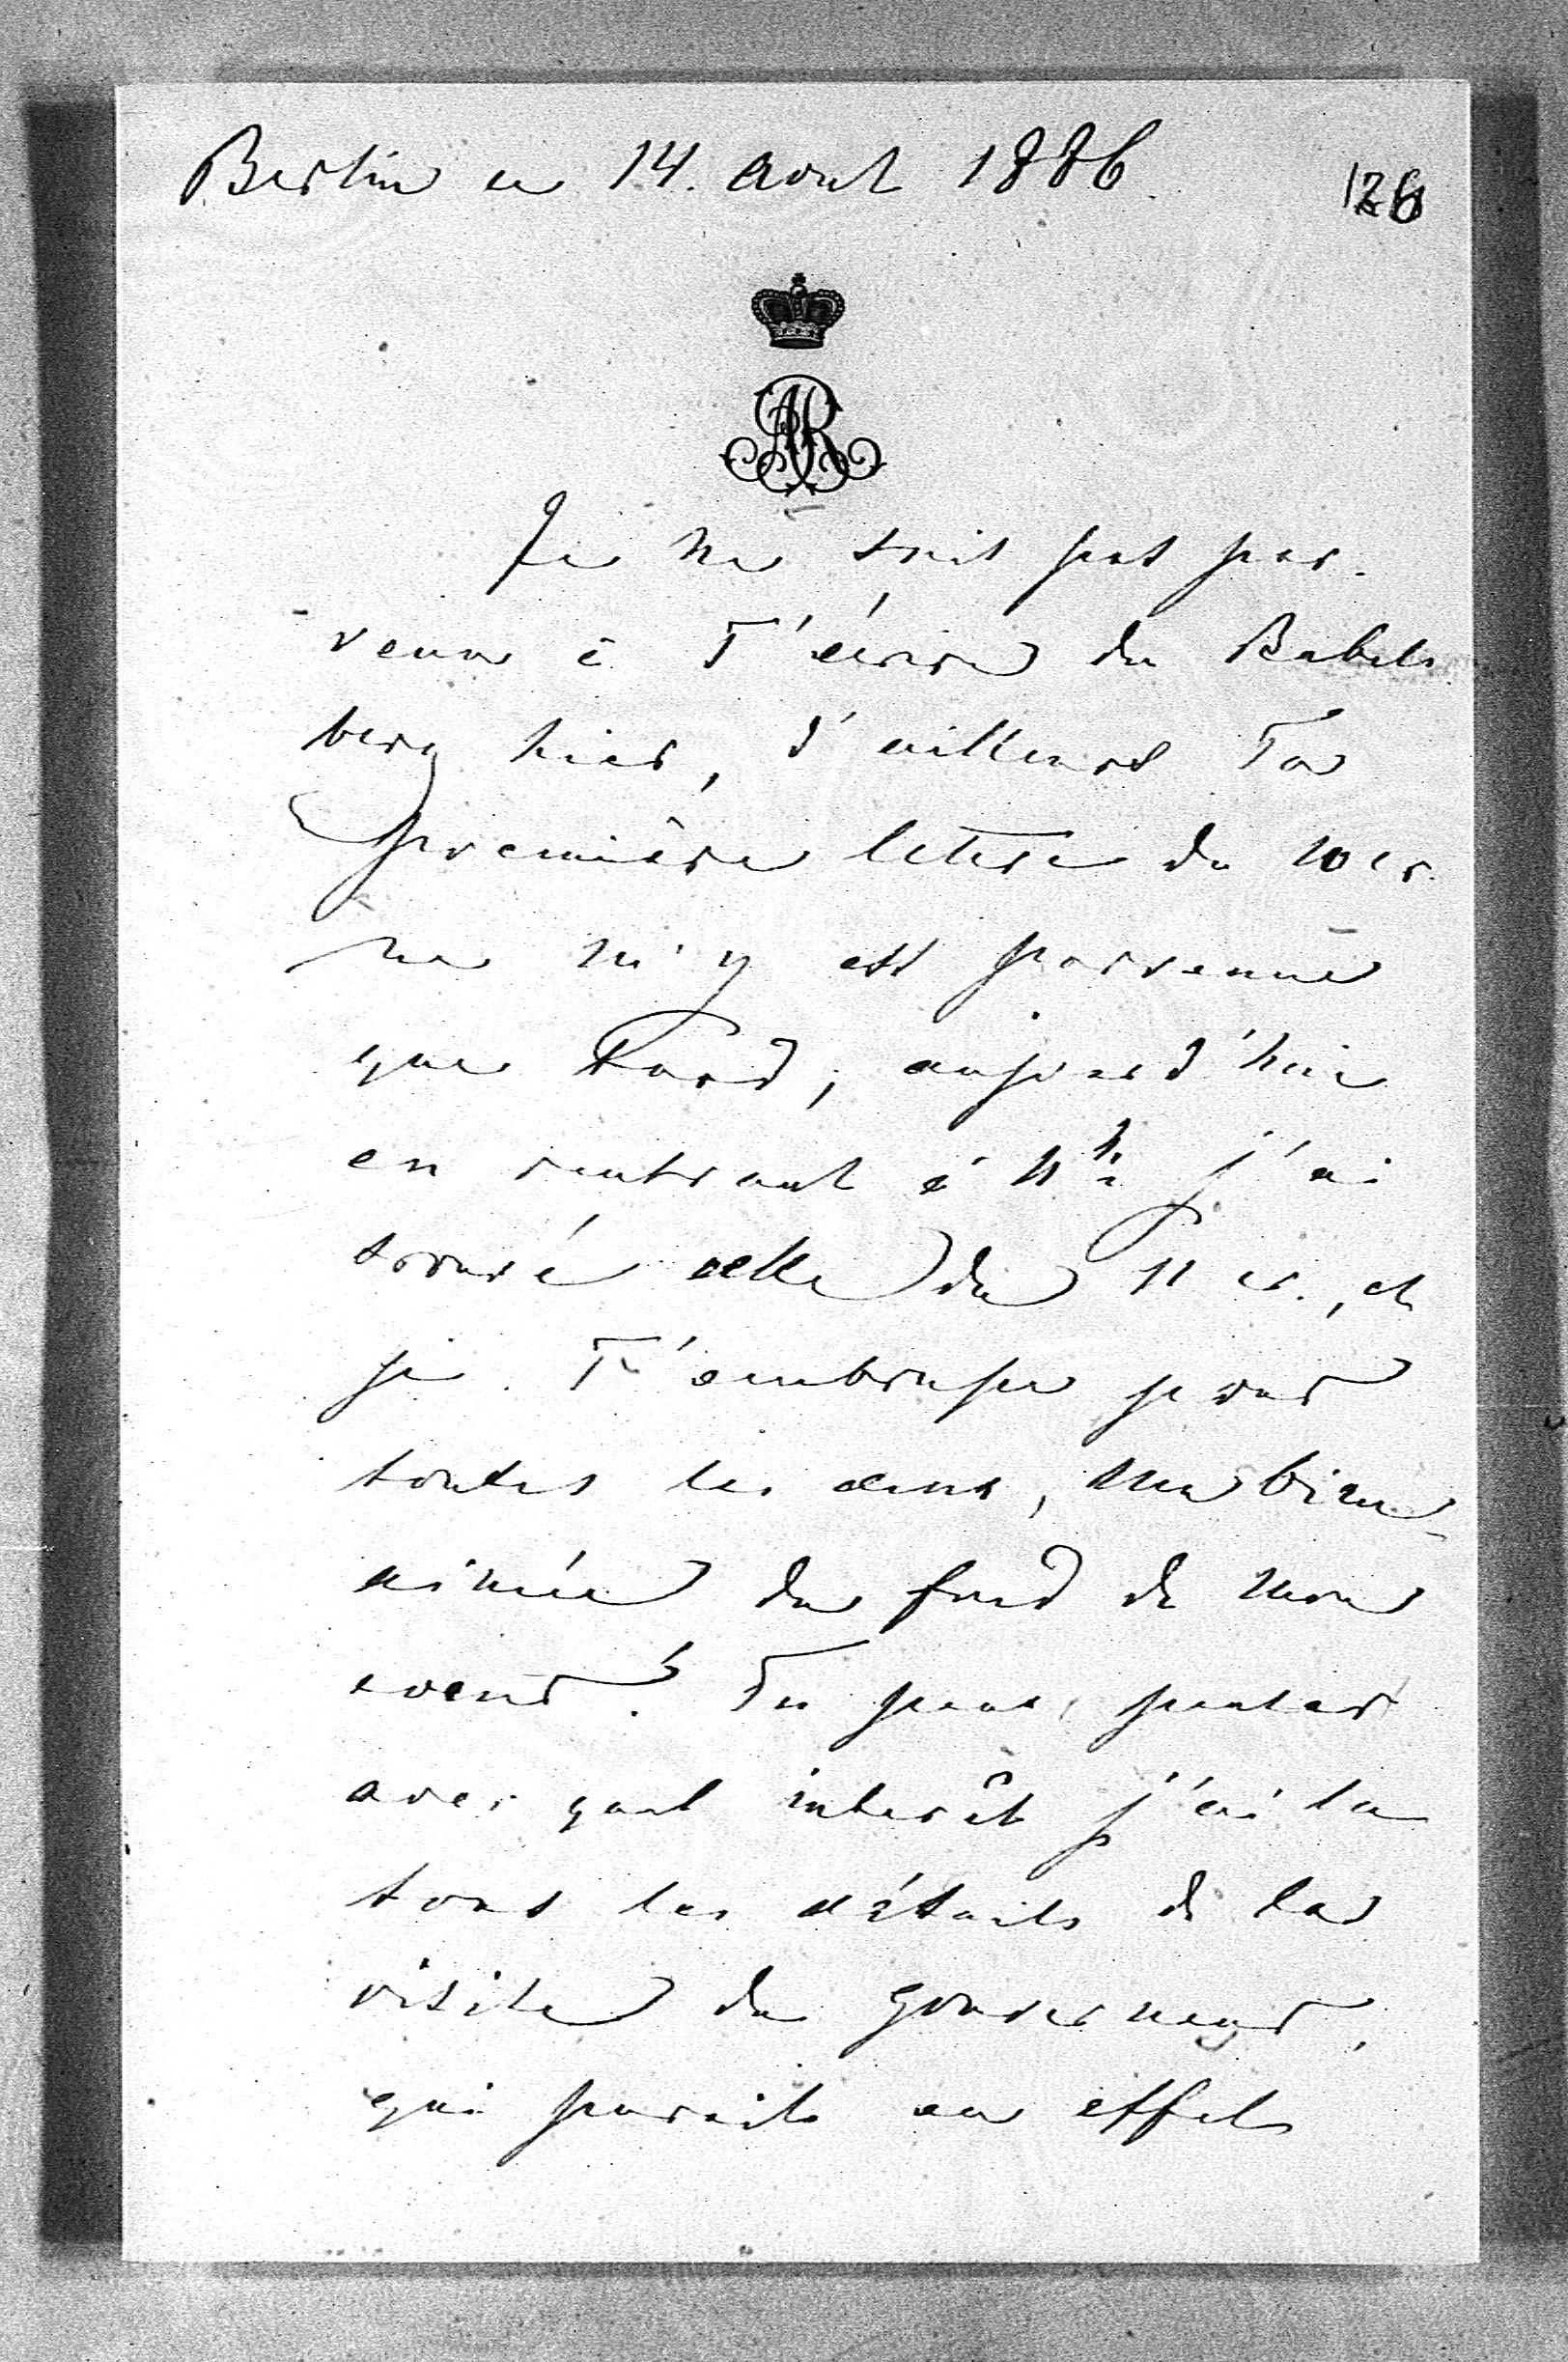 Berlin ce 14. Aout 1886
126
AR
Je ne suis pas par-
venu à T'écrire du Babels
berg hier, d'ailleurs Ta
première lettre du 10 cr.
ne m'y est parvenue
que tard; aujourd'hui
en rentrant à 4 h j'ai
trouvé celle du 11 cr., et
je T'embrasse pour
toutes les deux, ma bien-
aimée du fond de mon
coeur! Tu peux penser
avec quel intérêt j'ai lu
tous les détails de la
visite du gouverneur,
qui parait en effet